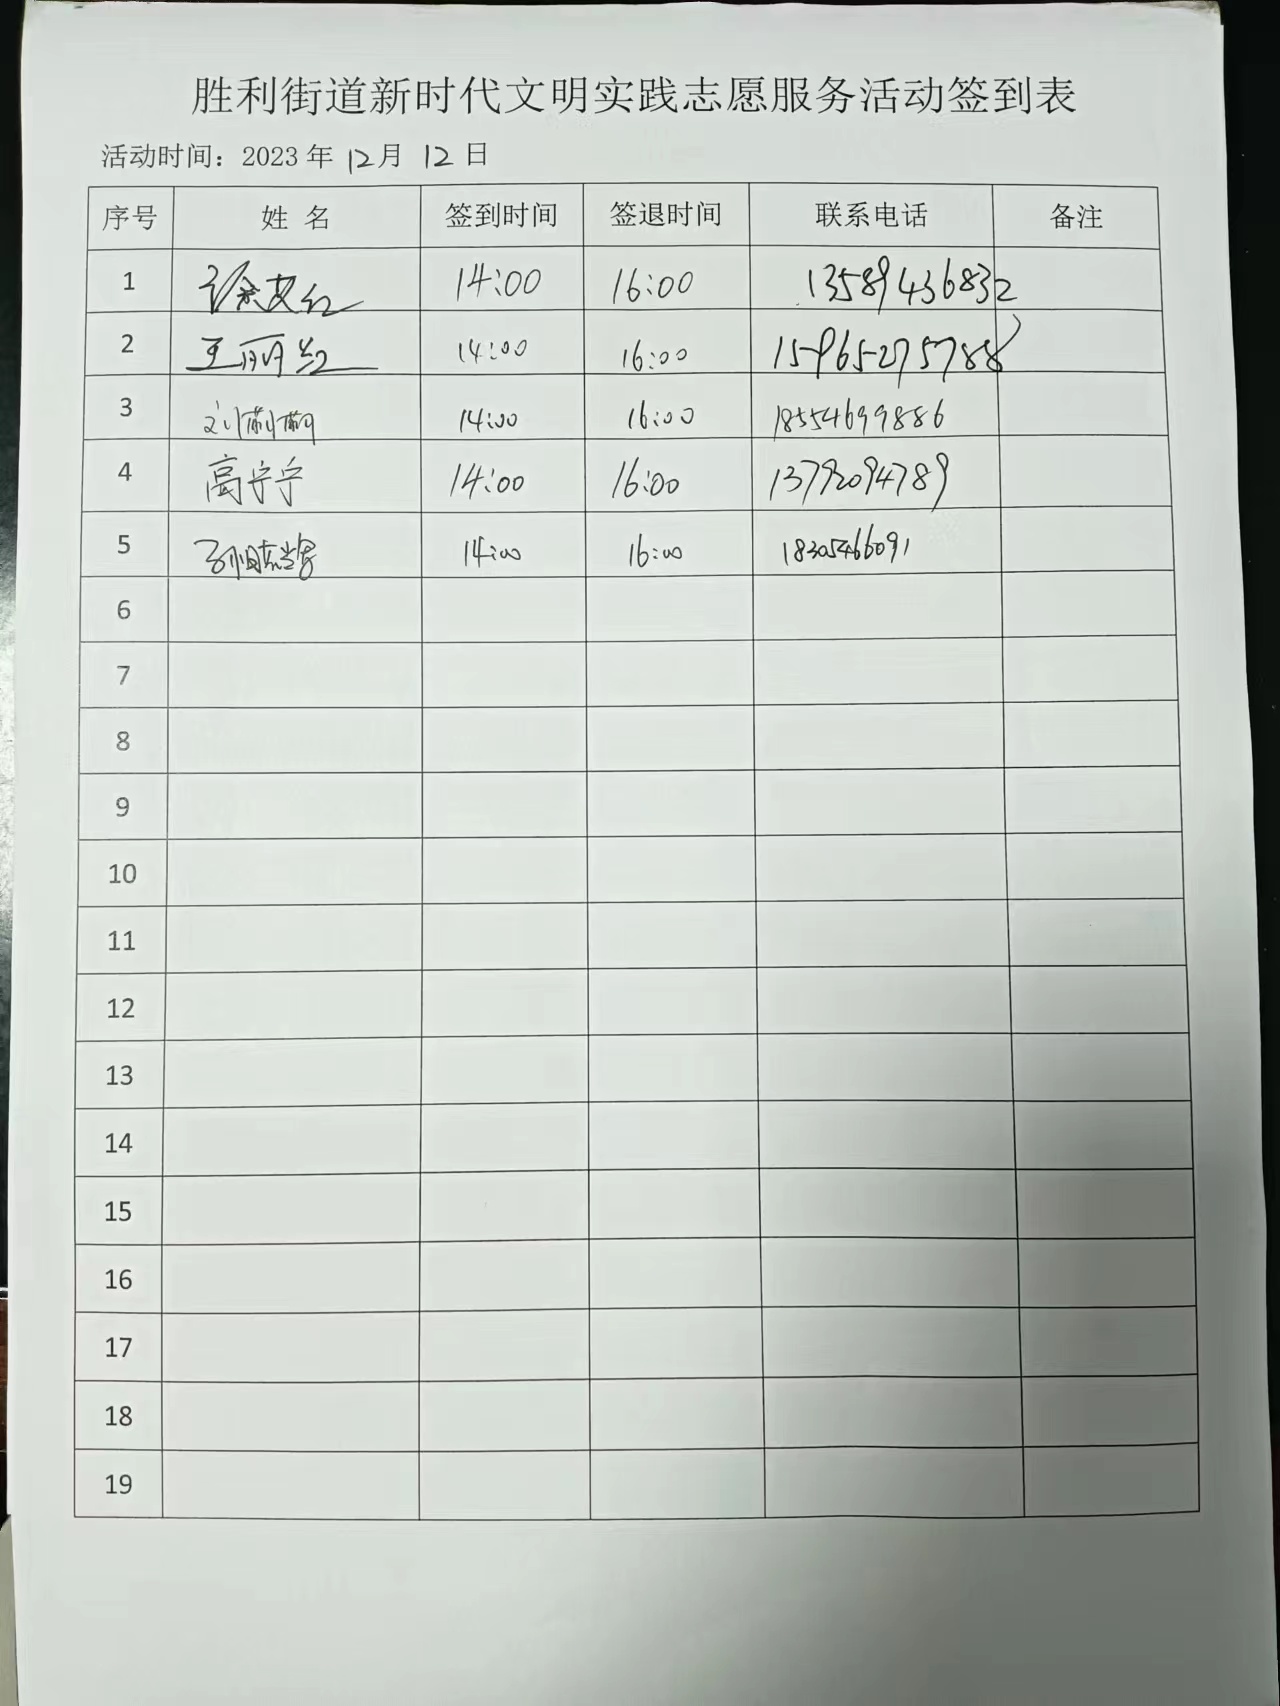 胜利街道新时代文明实践志愿服务活动签到表
活动时间：2023 年 12月 12 日
序号 姓 名 签到时间 签退时间 联系电话 备注
1 徐 红 14:00 16:00 13589436832
2 王丽红 14:00 16:00 15965275788
3 刘莉莉 14:00 16:00 18554699886
4 高宁宁 14:00 16:00 13792094789
5 14:00 16:00 18305466091
6
7
8
9
10
11
12
13
14
15
16
17
18
19